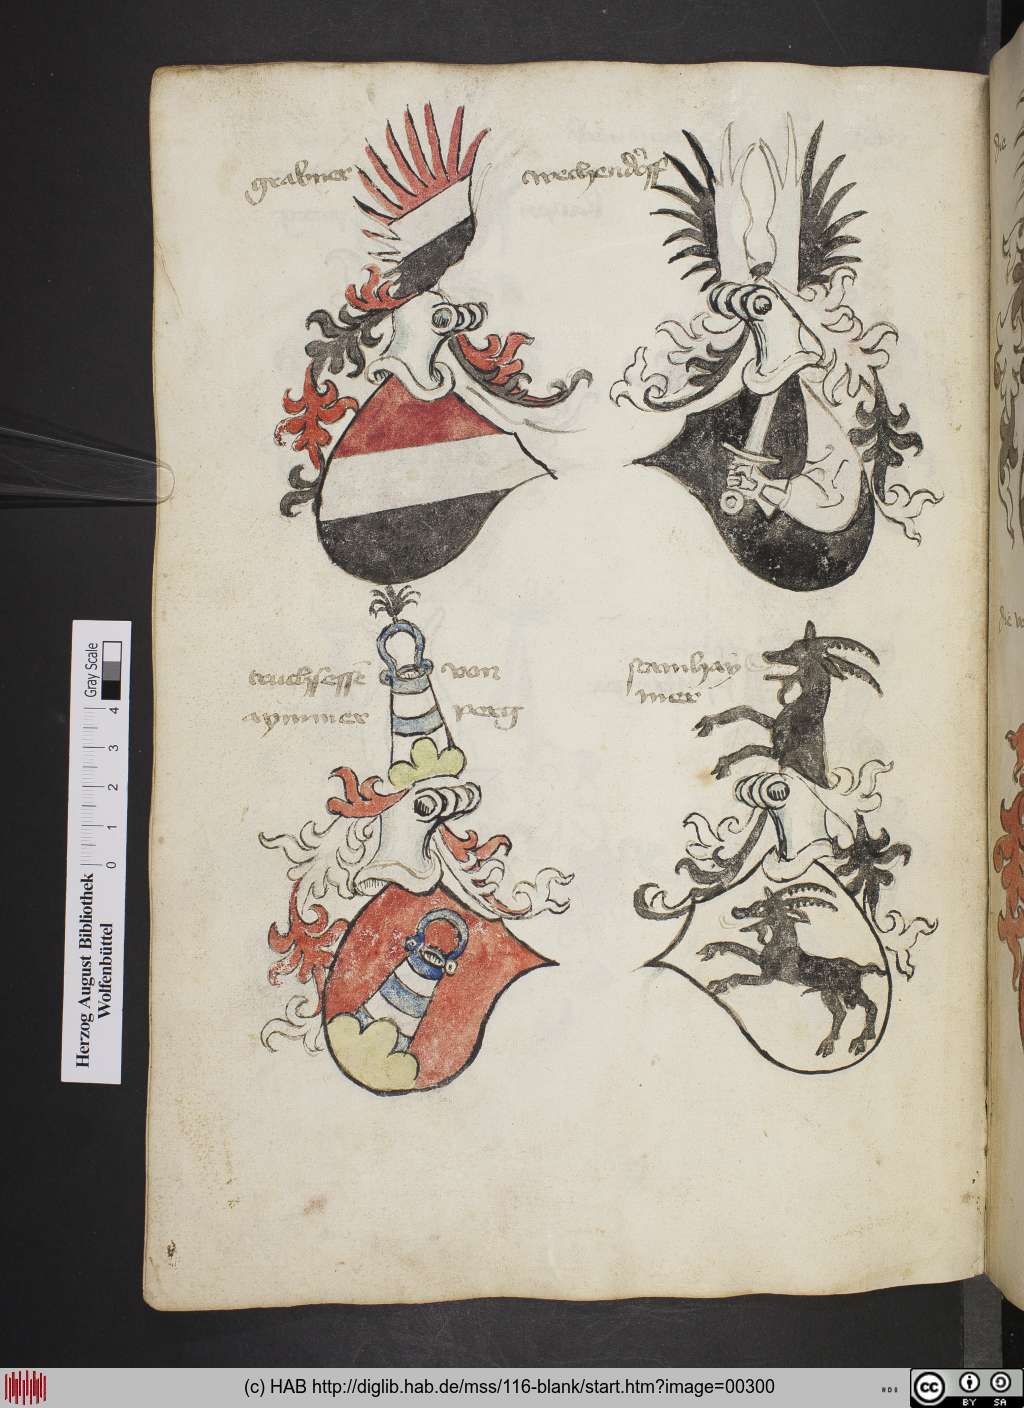 grabner
wechendorff
truchsesse von
rymmer perg
stainhay
mer
Gray Scale
4
3
2
1
0
Herzog August Bibliothek
Wolfenbüttel
(c) HAB http://diglib.hab.de/mss/116-blank/start.htm?image=00300
cc BY SA